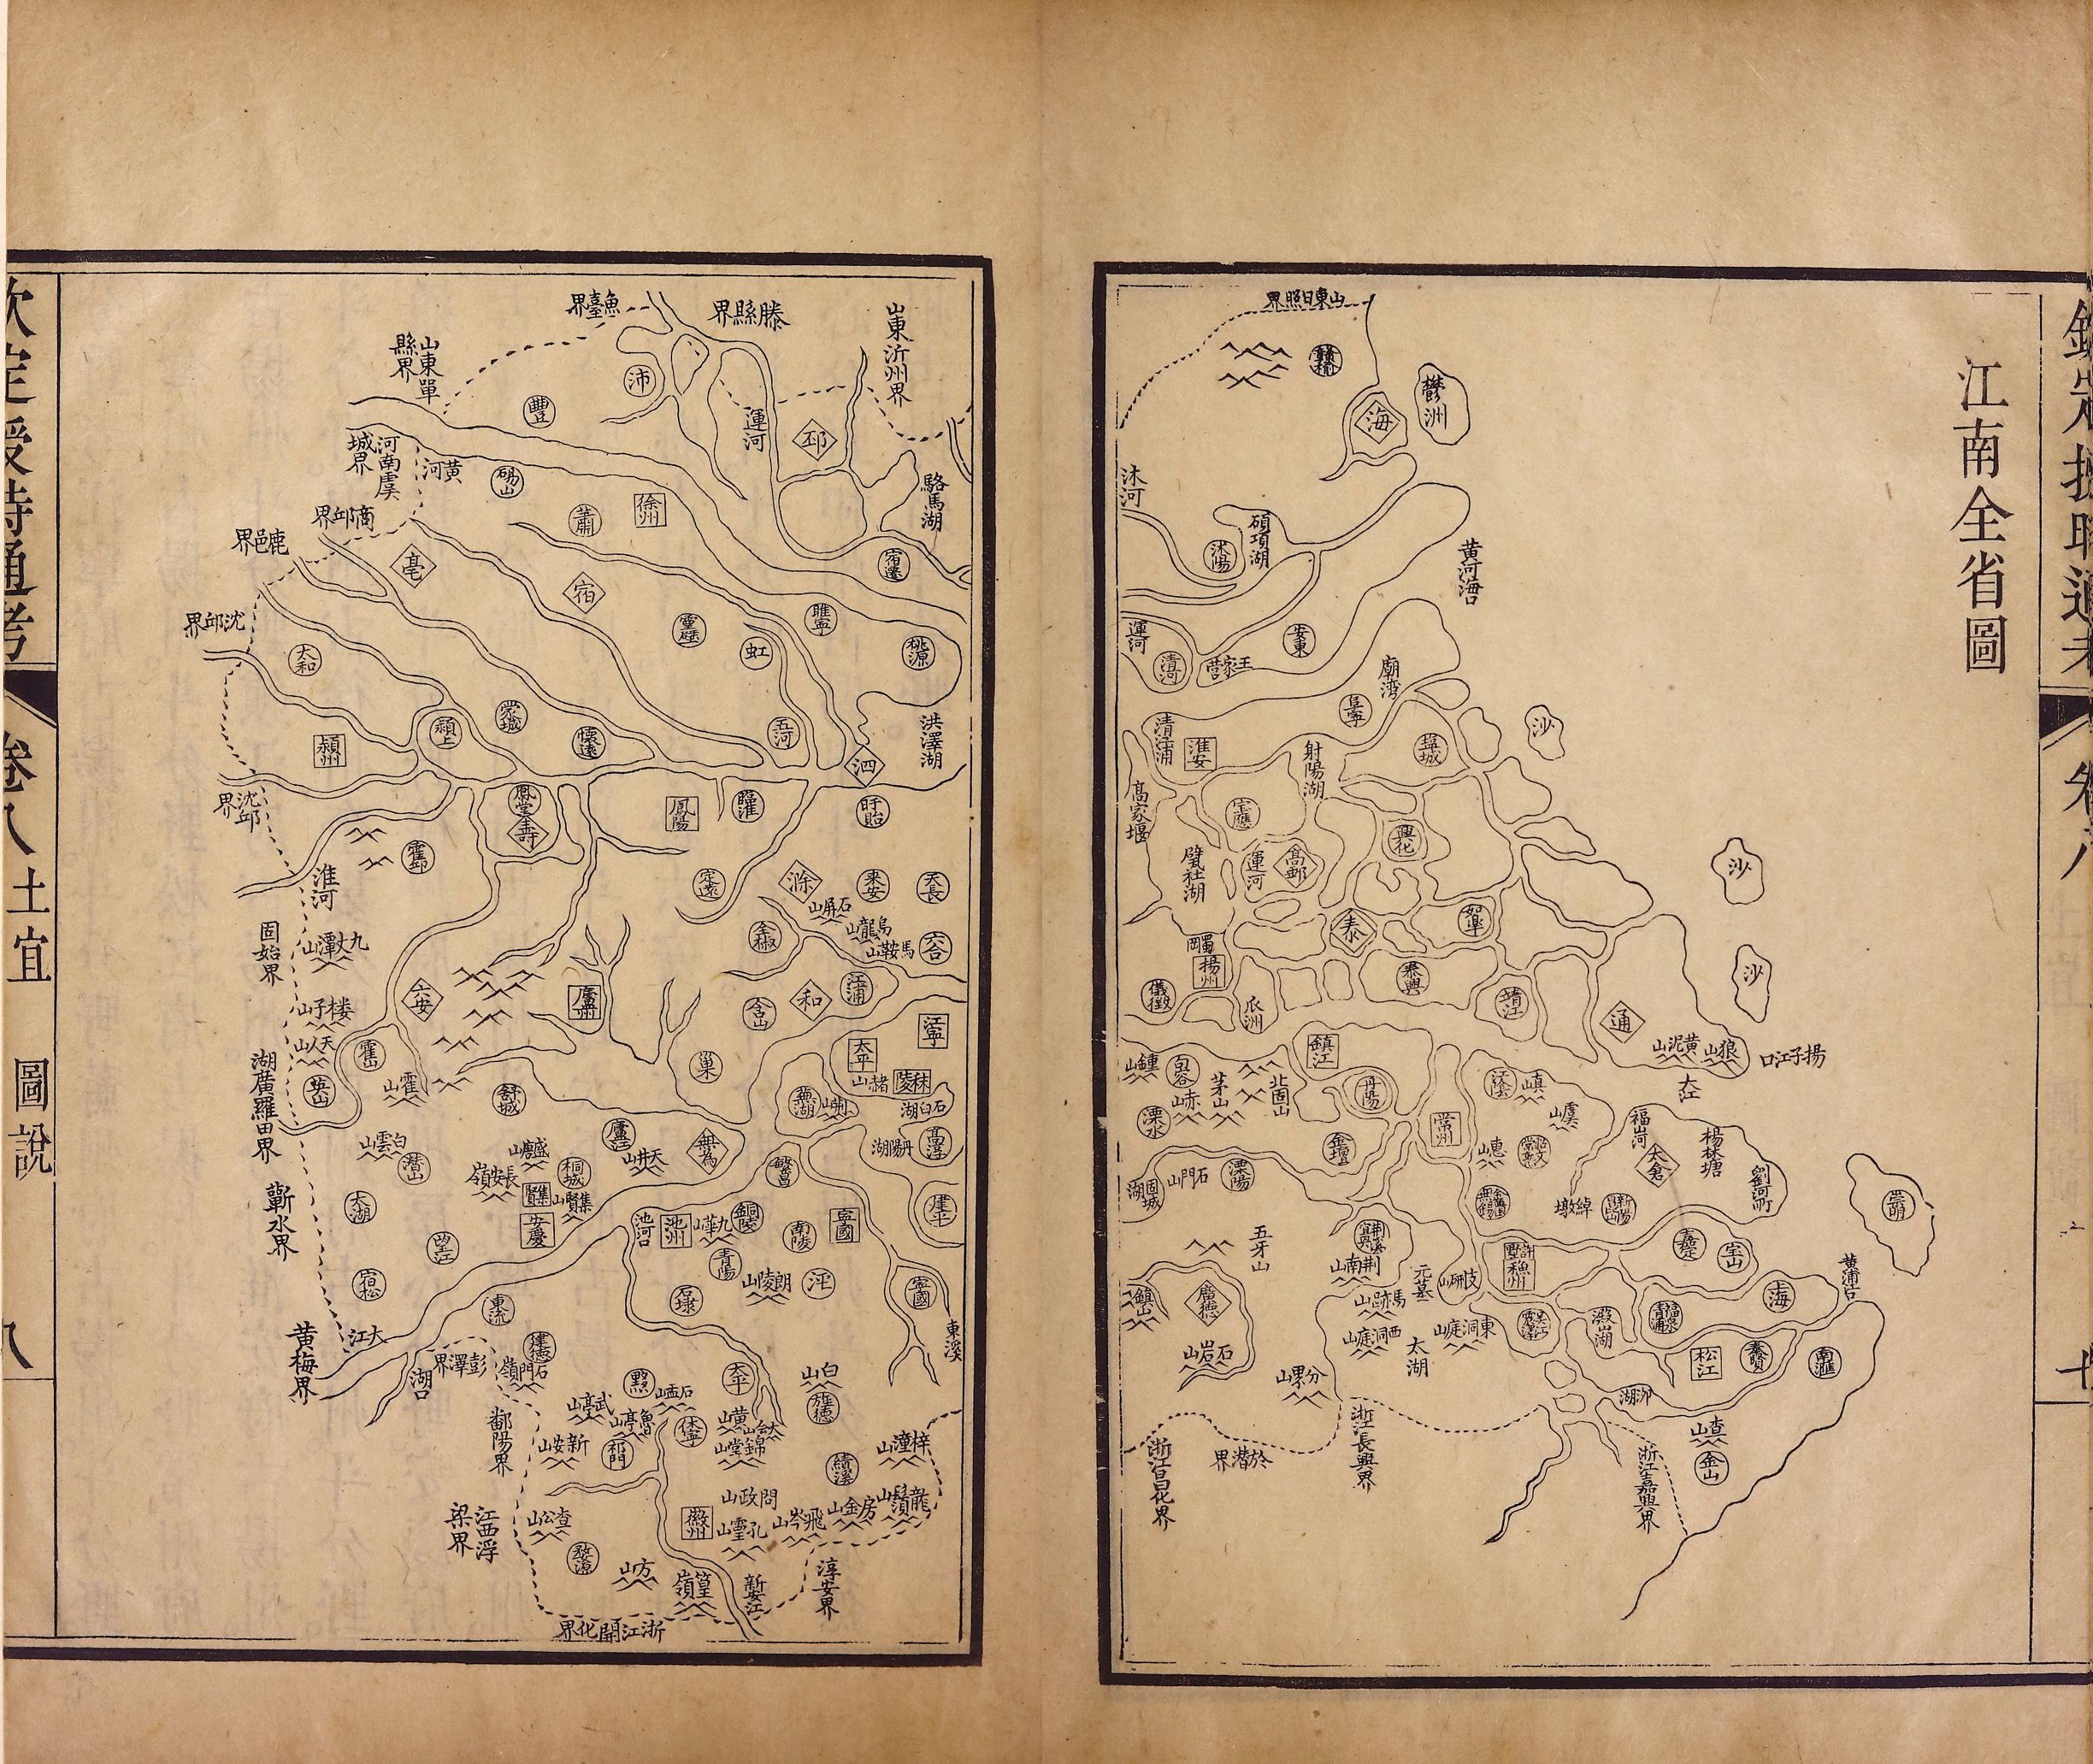 江南全省圖
欽定授時通考
卷八
山東日照界
贛榆
海
鬱洲
沐河
沭陽
碩項湖
黃河海口
運河
清河
王家营
安東
廟湾
阜寧
清江浦
淮安
射陽湖
鹽城
沙
高家堰
宝應
興化
沙
甓社湖
運河
高郵
泰
如皐
揚州
儀徵
瓜洲
泰興
靖江
沙
通
狼山
黃泥山
揚子江口
大江
鎮江
鍾山
句容
茅山
北固山
丹陽
赤山
溧水
金壇
常州
江陰
君山
虞山
惠山
福山河
太倉
楊林塘
劉河町
崇明
石門山
溧陽
固城湖
綽墩
五牙山
荊南山
元墓
支硎山
許墅
蘇州
嘉定
宝山
黃浦口
廣德
馬跡山
西洞庭山
東洞庭山
太湖
澱山湖
上海
石岩山
松江
南滙
泖湖
查山
金山
於潜界
浙江昌化界
浙江長興界
浙江嘉興界
欽定授時通考
卷八
土宜
圖說
八
魚臺界
滕縣界
山東沂州界
山東單縣界
沛
豐
運河
邳
河南虞城界
黃河
碭山
駱馬湖
商邱界
蕭
徐州
鹿邑界
亳
宿遷
宿
靈璧
睢寧
沈邱界
太和
虹
桃源
蒙城
潁上
懷遠
五河
洪澤湖
潁州
泗
沈邱界
鳳臺
壽
鳳陽
臨淮
盱眙
霍邱
淮河
定遠
滁
來安
天長
石屏山
烏龍山
馬鞍山
六合
固始界
九丈潭山
全椒
六安
廬州
和
江浦
含山
江寧
楼子山
天人山
湖廣羅田界
霍山
英山
霍山
舒城
巢
太平
秣陵
蕪湖
石臼湖
白雲山
潜山
廬江
天井山
無為
丹陽湖
高淳
長安嶺
桐城
集賢
集賢山
繁昌
蘄水界
太湖
安慶
池河口
池州
九華山
銅陵
南陵
寧國
建平
望江
青陽
朗陵山
涇
宿松
石埭
寧國
東流
大江
黃梅界
彭澤界
湖口
建德
石門嶺
東溪
鄱陽界
武亭山
黟
魯亭山
太平
白山
旌德
新安山
祁門
休寧
黃山
梓潼山
績溪
江西浮梁界
查公山
徽州
問政山
孔靈山
飛岑山
房金山
龍鬚山
婺源
方山
篁嶺
新安江
淳安界
浙江開化界